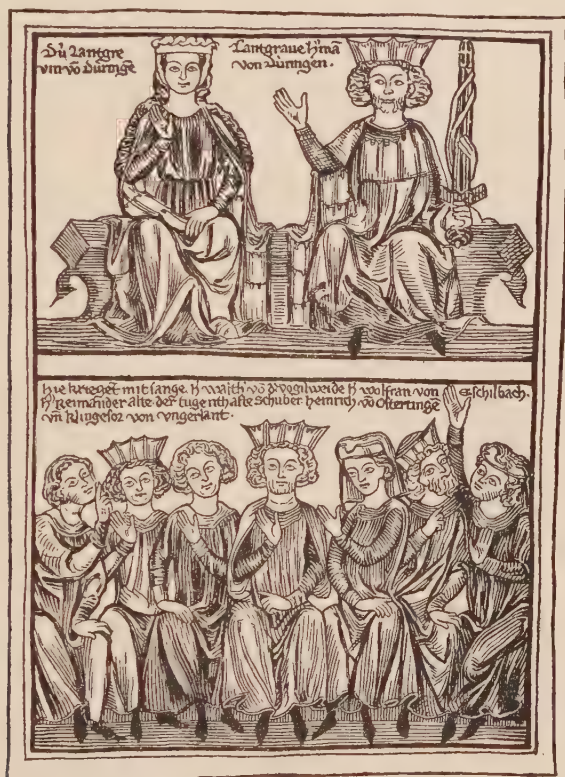 Dů Lantgre
vin võ Düringẽ
Lantgraue h͛mã
von Düringen.
hie krieget mit sange. h͛ walth͛ võ d͛ vogilweide h͛ wolfran von eschilbach.
h͛ Reimar der alte. der tugenthafte Schriber heinrich võ Oftertinge
vñ Klingesor von Vngerlant.